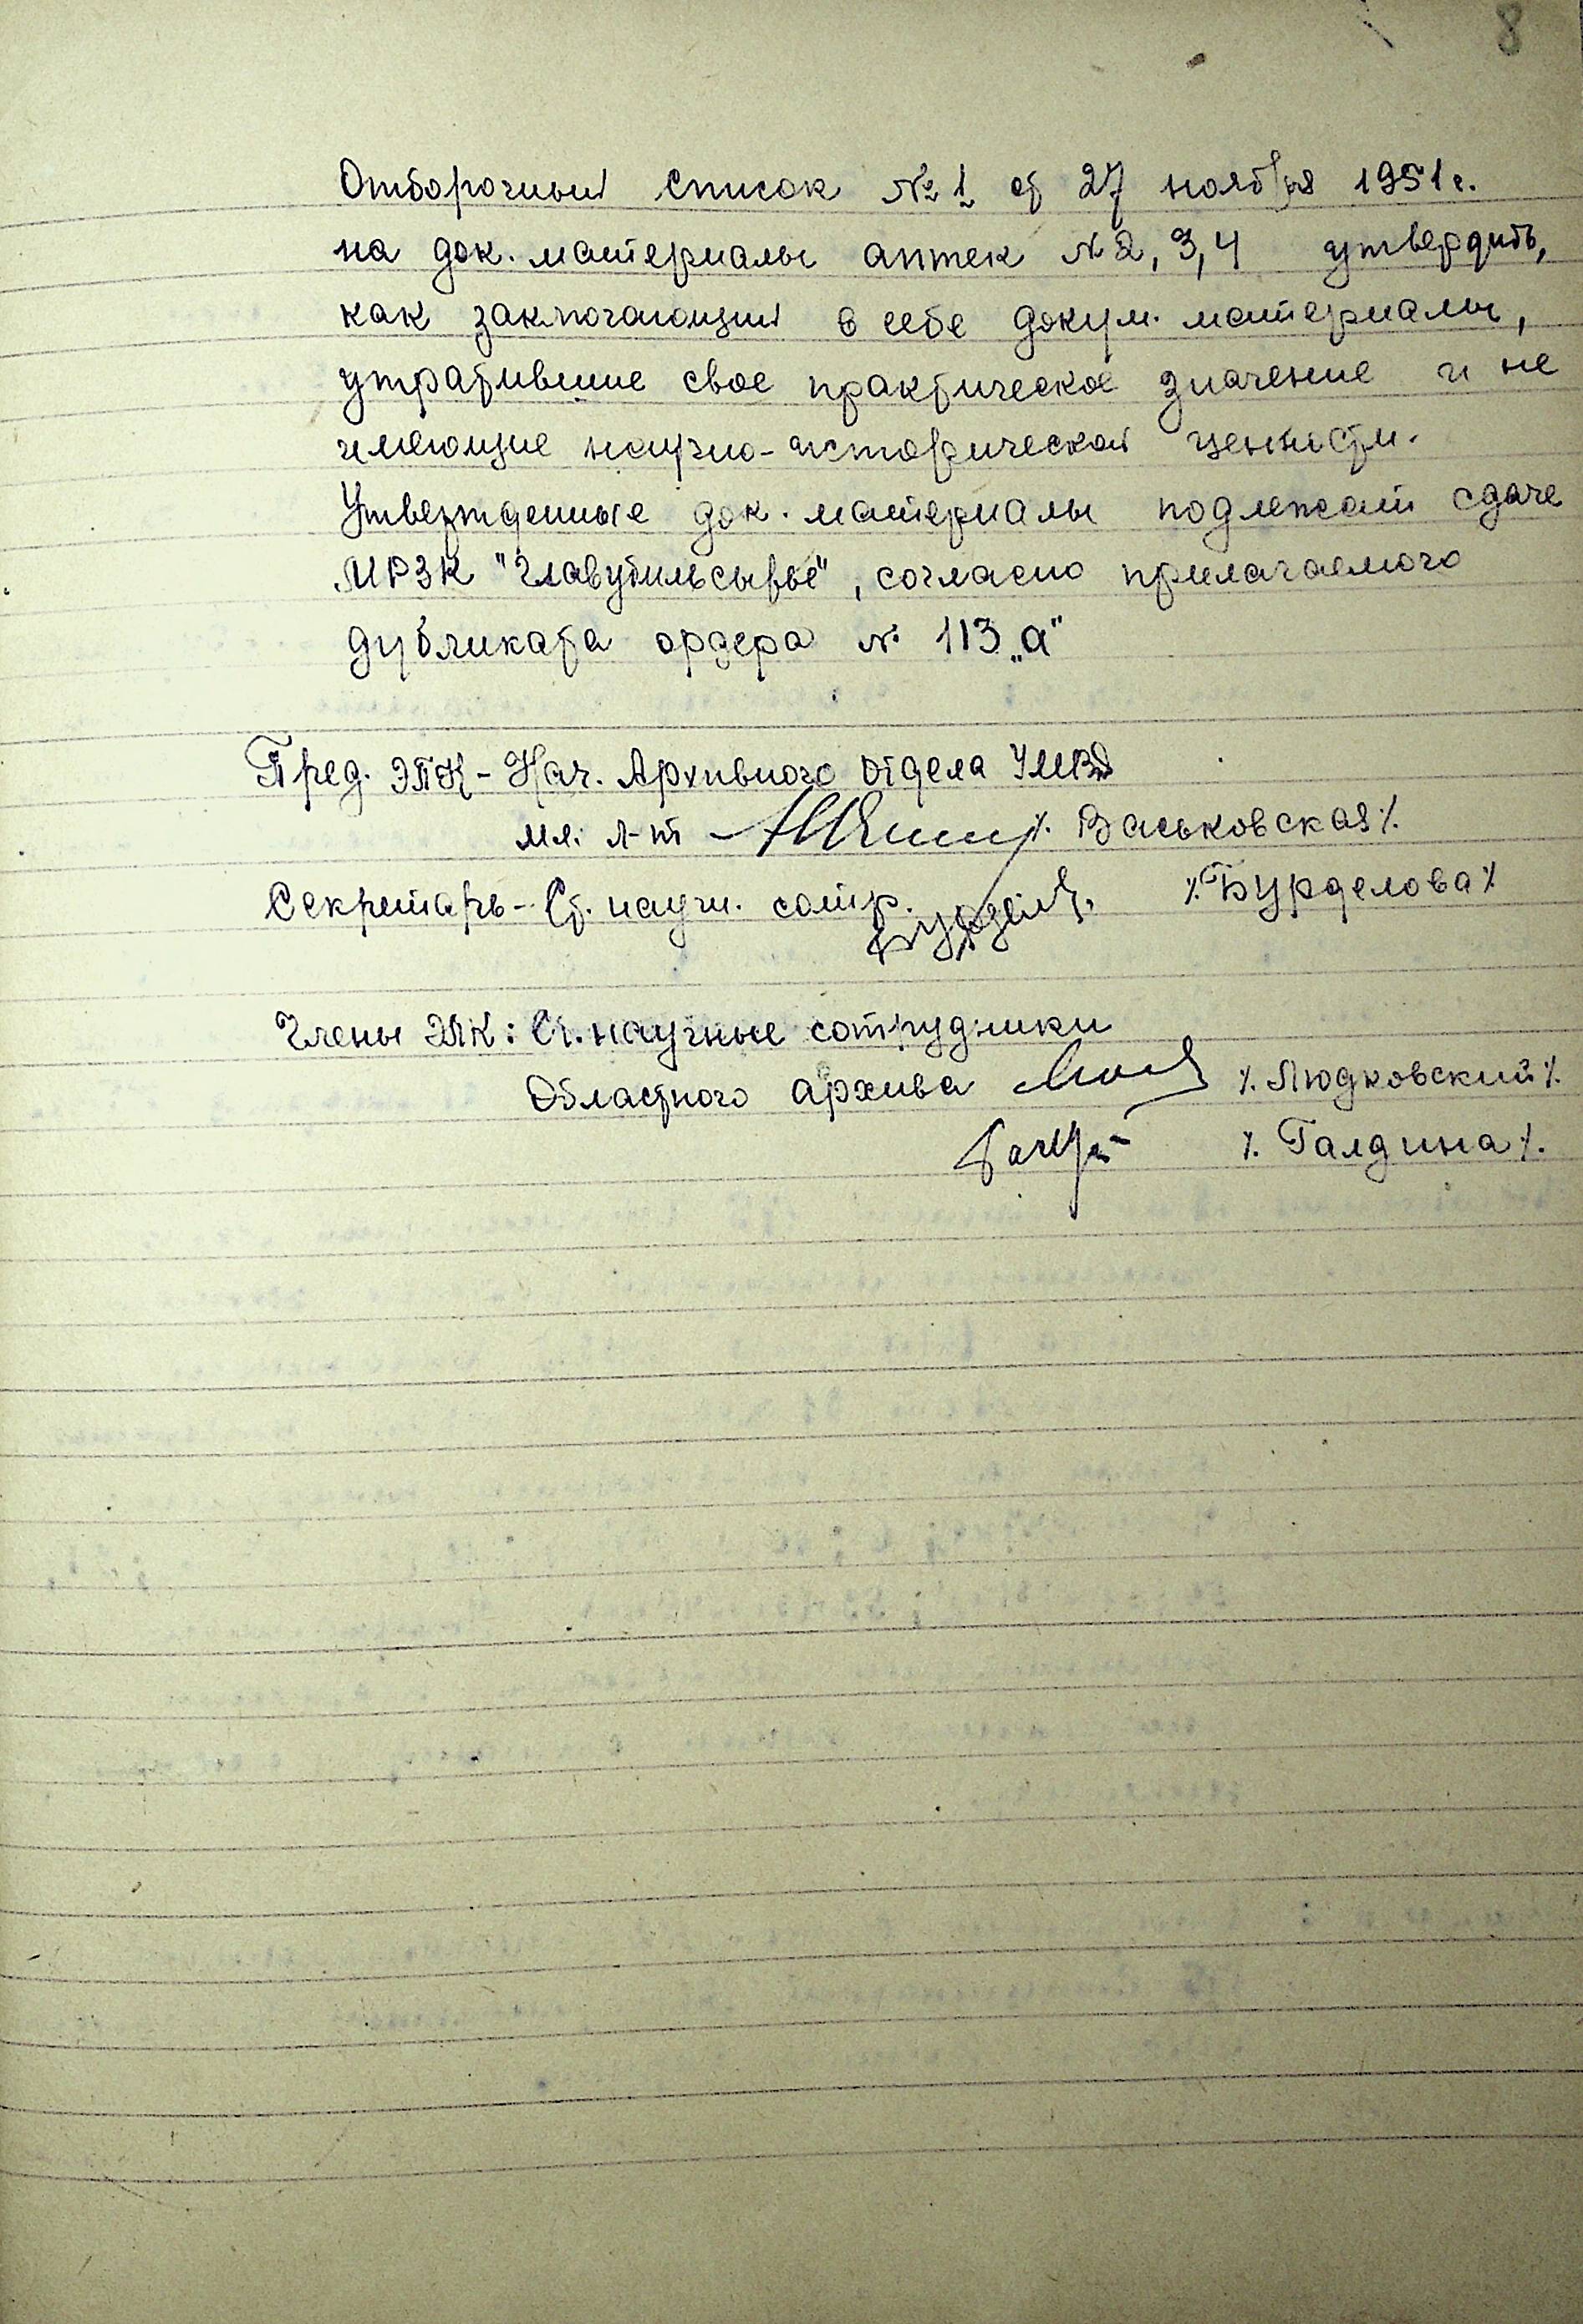 8
Отборочный список № 1 от 27 ноября 1951 г.
на док. материалы аптек № 2, 3, 4 утвердить,
как заключающий в себе докум. материалы,
утратившие свое практическое значение и не
имеющие научно-исторической ценности.
Утвержденные док. материалы подлежат сдаче
МРЗК "Главутильсырье", согласно прилагаемого
дубликата ордера № 113 „а"
Пред. ЭПК - Нач. Архивного отдела УМВД
мл. л-т /. Васьковская /.
Секретарь - Ст. научн. сотр. /. Бурделова /.
Члены ЭПК: Ст. научные сотрудники
Областного архива /. Людковский /.
/. Галдина /.